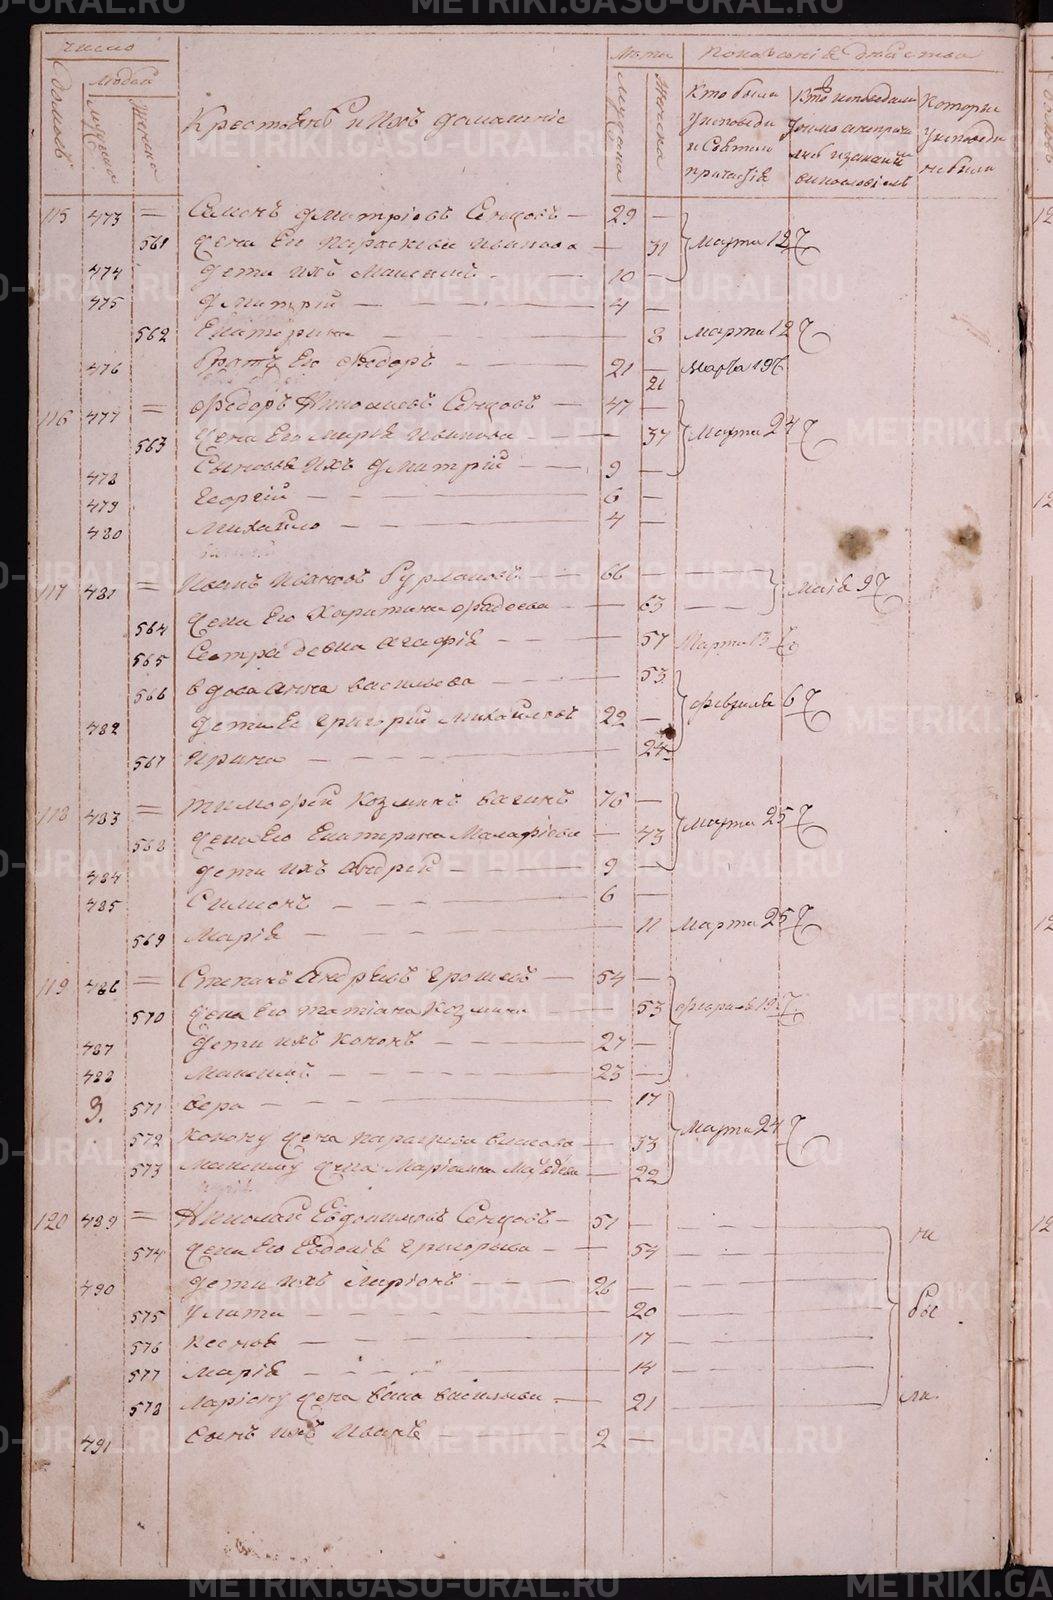 число
лета
показанiе действа
домовъ
людей
мужска
женска
Крестьянъ и ихъ домашнiе
мужска
женска
Кто были
у исповеди
и Святаго
причастiя
Кто исповедали
токмо а не прича
которые
у исповеди
не были
115 473 = Семенъ Дмитрiевъ Сенцовъ — 29 —
561 жена Его Параскева Иванова — 31 Марта 12
474 дети ихъ Максимъ — 10 —
475 Дмитрiй — 4 —
562 Екатерина — 8 Марта 12
476 Братъ Его Федоръ — 21 — Марта 19
21
116 477 = Федоръ Николаевъ Сенцовъ — 47 —
563 жена Его Марiя Иванова — 37 Марта 24
478 Сыновья ихъ Дмитрiй — 9 —
479 Георгiй — 6 —
480 Михайло — 4 —
117 481 = Иванъ Ивановъ Бурмаковъ — 66 — Маiя 9
564 жена Его Харитина Фадеева — 63
565 Сестра девка Агафiя — 57 Марта 13
566 вдова Анна Васильева — 53 февраля 6
482 дети Ея Григорiй Михайловъ 22 —
567 Ирина — 24
118 483 = Тимофей Козминъ Вагинъ 76 —
568 жена Его Екатерина Малафiева — 43 Марта 25
484 дети ихъ Андрей — 9 —
485 Симионъ — 6 —
569 Марiя — 11 Марта 25
119 486 = Степанъ Андреевъ Грошевъ — 54 —
570 жена Его Татiана Козмина — 53 февраля 19
487 дети ихъ Кононъ — 27 —
488 Максимъ — 23 —
3. 571 Вера — 17
572 Конону жена Параскева Власова — 33 Марта 24
573 Максиму жена Марiамна — 22
120 489 = Николай Евдокимовъ Сенцовъ — 51 — не
574 жена Его Евдокiя Григорьева — 54
490 дети ихъ Ларiонъ — 26 —
575 Улита — 20 бы
576 Ксенiя — 17
577 Марiя — 14
578 Ларiону жена Анна Васильева — 21 ли.
491 Сынъ ихъ Иванъ — 2 —
METRIKI.GASO-URAL.RU